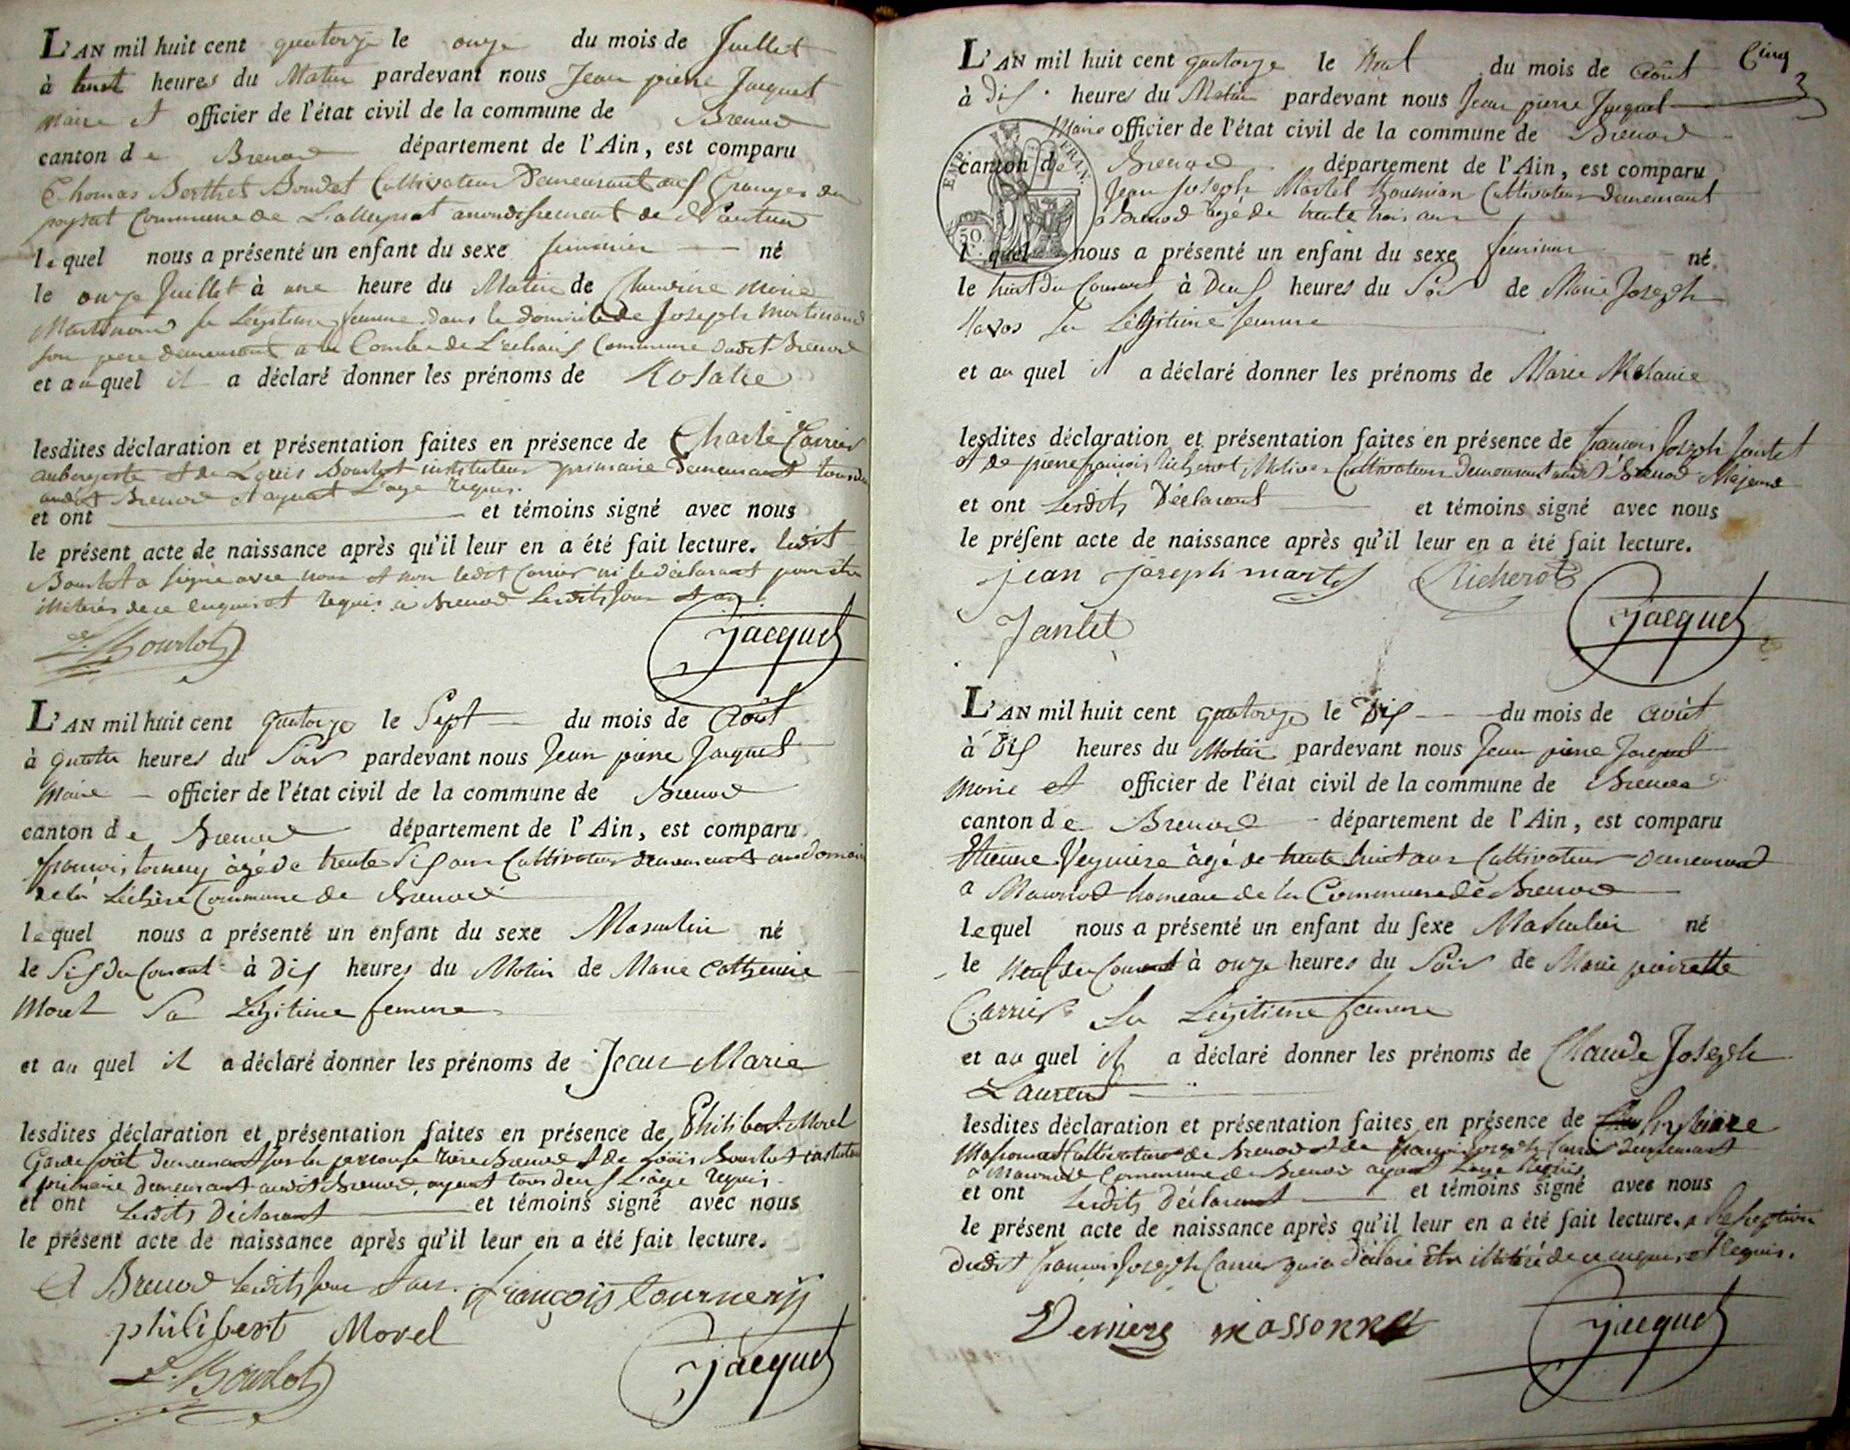 L'AN mil huit cent quatorze le onze du mois de Juillet
à huit heures du Matin pardevant nous Jean pierre Jacquet
maire et officier de l'état civil de la commune de Brenod
canton de Brenod département de l'Ain, est comparu
Thomas Berthet Bondet Cultivateur Demeurant aux Granges du
poysat Commune de L'alleyriat arrondissement de Nantua
lequel nous a présenté un enfant du sexe feminin né
le onze Juillet à une heure du Matin de Claudine Marie
Martinand sa Légitime femme dans le domicile de Joseph Martinand
son pere demeurant a la Combe de Lechaux Commune dudit Brenod
et au quel il a déclaré donner les prénoms de Rosalie
lesdites déclaration et présentation faites en présence de Charle Carrier
aubergiste et de Louis Bourlot instituteur primaire demeurant tous deux
audit Brenod et ayant L'age requis.
et ont et témoins signé avec nous
le présent acte de naissance après qu'il leur en a été fait lecture. ledit
Bourlot a signé avec nous et non ledit Carrier ni le déclarant pour être
illiterés de ce enquis et requis à Brenod Lesdits jour et an
L. Bourlot Jacquet
L'AN mil huit cent quatorze le Sept du mois de Août
à quatre heures du Soir pardevant nous Jean pierre Jacquet
Maire officier de l'état civil de la commune de Brenod
canton de Brenod département de l'Ain, est comparu
françois torney âgé de trente Six ans Cultivateur demeurant au domaine
de la Léchère Commune de Brenod
lequel nous a présenté un enfant du sexe Masculin né
le Six du Courant à Dix heures du Matin de Marie Catherine
Morel Sa Légitime femme
et au quel il a déclaré donner les prénoms de Jean Marie
lesdites déclaration et présentation faites en présence de Philibert Morel
Garde forêt demeurant sur la Brenod et de Louis Bourlot instituteur
primaire demeurant audit Brenod, ayant tous deux L'âge requis
et ont Lesdits Déclarant et témoins signé avec nous
le présent acte de naissance après qu'il leur en a été fait lecture.
A Brenod Lesdits jour et an. françois tournery
philibert Morel
L. Bourlot Jacquet
Cinq
3
L'AN mil huit cent quatorze le huit du mois de Août
à Dix heures du Matin pardevant nous Jean pierre Jacquet
Maire officier de l'état civil de la commune de Brenod
canton de Brenod département de l'Ain, est comparu
Jean Joseph Martel Cultivateur Demeurant
a Brenod âgé de trente trois ans
EMP. FRAN.
50
lequel nous a présenté un enfant du sexe feminin né
le huit du Courant à Deux heures du Soir de Marie Joseph
Savos Sa Légitime femme
et au quel il a déclaré donner les prénoms de Marie Melanie
lesdites déclaration et présentation faites en présence de françois Joseph Jantet
et de pierre françois Richerot, Cultivateurs demeurant audit Brenod Majeurs
et ont Lesdits Déclarant et témoins signé avec nous
le présent acte de naissance après qu'il leur en a été fait lecture.
jean joseph martel Richerot
Jantet Jacquet
L'AN mil huit cent quatorze le Dix du mois de août
à Dix heures du Matin pardevant nous Jean pierre Jacquet
Maire et officier de l'état civil de la commune de Brenod
canton de Brenod département de l'Ain, est comparu
Etienne Veyriere âgé de trente huit ans Cultivateur demeurant
a Macornod hameau de la Commune de Brenod
lequel nous a présenté un enfant du sexe Masculin né
le Neuf du Courant à onze heures du Soir de Marie pierrette
Carrier Sa Légitime femme
et au quel il a déclaré donner les prénoms de Claude Joseph
Laurend
lesdites déclaration et présentation faites en présence de
Massonnet Cultivateur de Brenod et de françois Joseph Carrier demeurant
a Macornod Commune de Brenod ayant L'age requis
et ont Lesdits déclarant et témoins signé avec nous
le présent acte de naissance après qu'il leur en a été fait lecture. a l'exeption
dudit françois Joseph Carrier qui a déclaré Etre illiteré de ce enquis et Requis.
massonnet Jacquet